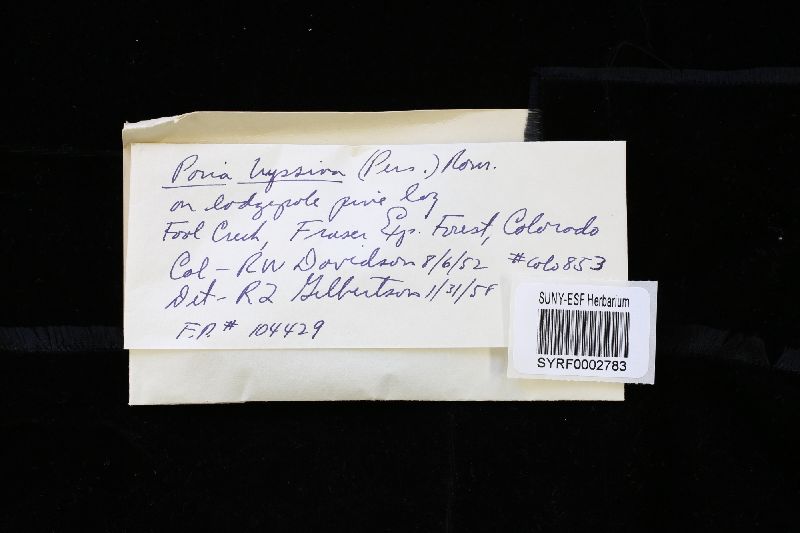 Poria byssina (Pers.) Rom.
on lodgepole pine log
Fool Creek, Fraser Exp. Forest, Colorado
Col - RW Davidson 8/6/52 #Colo853
Det - RL Gilbertson 1/31/58
F.P.# 104429
SUNY-ESF Herbarium
SYRF0002783